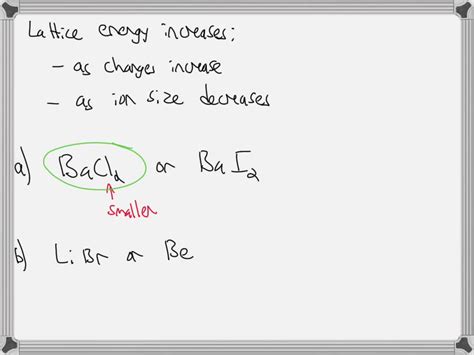 Lattice energy increases:
- as charges increase
- as ion size decreases
a) BaCl₂ or BaI₂
smaller
b) LiBr or Be